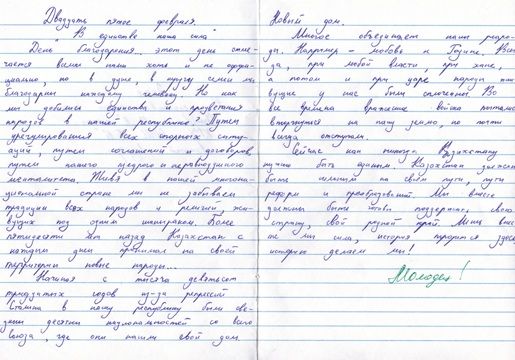 Двадцать пятое февраля.
"В единстве наша сила"
День благодарения. этот день отме-
чается всеми нами хоть и не офици-
ально, но в душе, в кругу семьи мы
благодарны каждому человеку. Но как
мы добились единства и процветания
народов в нашей республике? Путём
урегулирования всех спорных ситу-
аций, путём соглашений и договоров,
путём нашего щедрого и
менталитета. Живя в нашей многона-
циональной стране мы не забываем
традиции всех народов и религий, жи-
вущих под одним шаныраком. Более
пятидесяти лет назад Казахстан с
каждым днём принимал на своей
территории новые народы...
Начиная с тысяча девятьсот
тридцатых годов из-за репрессий
Сталина в нашу республику были све-
зены десятки национальностей со всего
Союза, где они нашли свой дом.
Новый дом.
Многое объединяет наши народы.
Например - любовь к Родине. Всег-
да, при любой власти, при хане,
а потом и при царе народы жи-
вущие у нас были сплочены. Во
все времена вражеские войска пытались
вторгнуться на нашу землю, но потом
всегда отступали.
Сейчас как никогда Казахстану
нужно быть единым. Казахстан должен
быть сильным на своём пути, пути
реформ и преобразований. Мы вместе
должны быть поддержать свою
страну, свой родной край. Мы вмес-
те мы сила, история творится здесь
историю делаем мы!
Молодец!